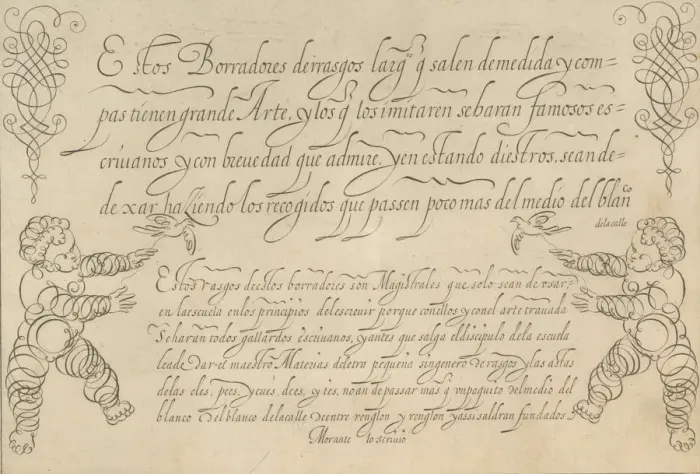 Estos Borradores derrasgos largos q̃ salen demedida y com=
pas tienen grande Arte, y los q̃ los imitaren se haran famosos es=
criuanos y con breuedad que admire, y en estando diestros, sean de=
de xar haziendo los recogidos que passen poco mas del medio del blanco
de la calle
Estos rasgos destos borradores son Magistrales que solo sean de vsar
en laescuela en los principios del escriuir porque con ellos y con el arte trauada
Se haran todos gallardos escriuanos, y antes que salga el discipulo de la escuela
leade dar el maestro Materias de letra pequeña sin genero de rasgos y las astas
de las eles, pees, y cues, dees, y tes, no an de passar mas q̃ vn poquito del medio del
blanco del blanco de la calle de entre renglon y renglon y assi saldran fundados
Morante lo scriuio